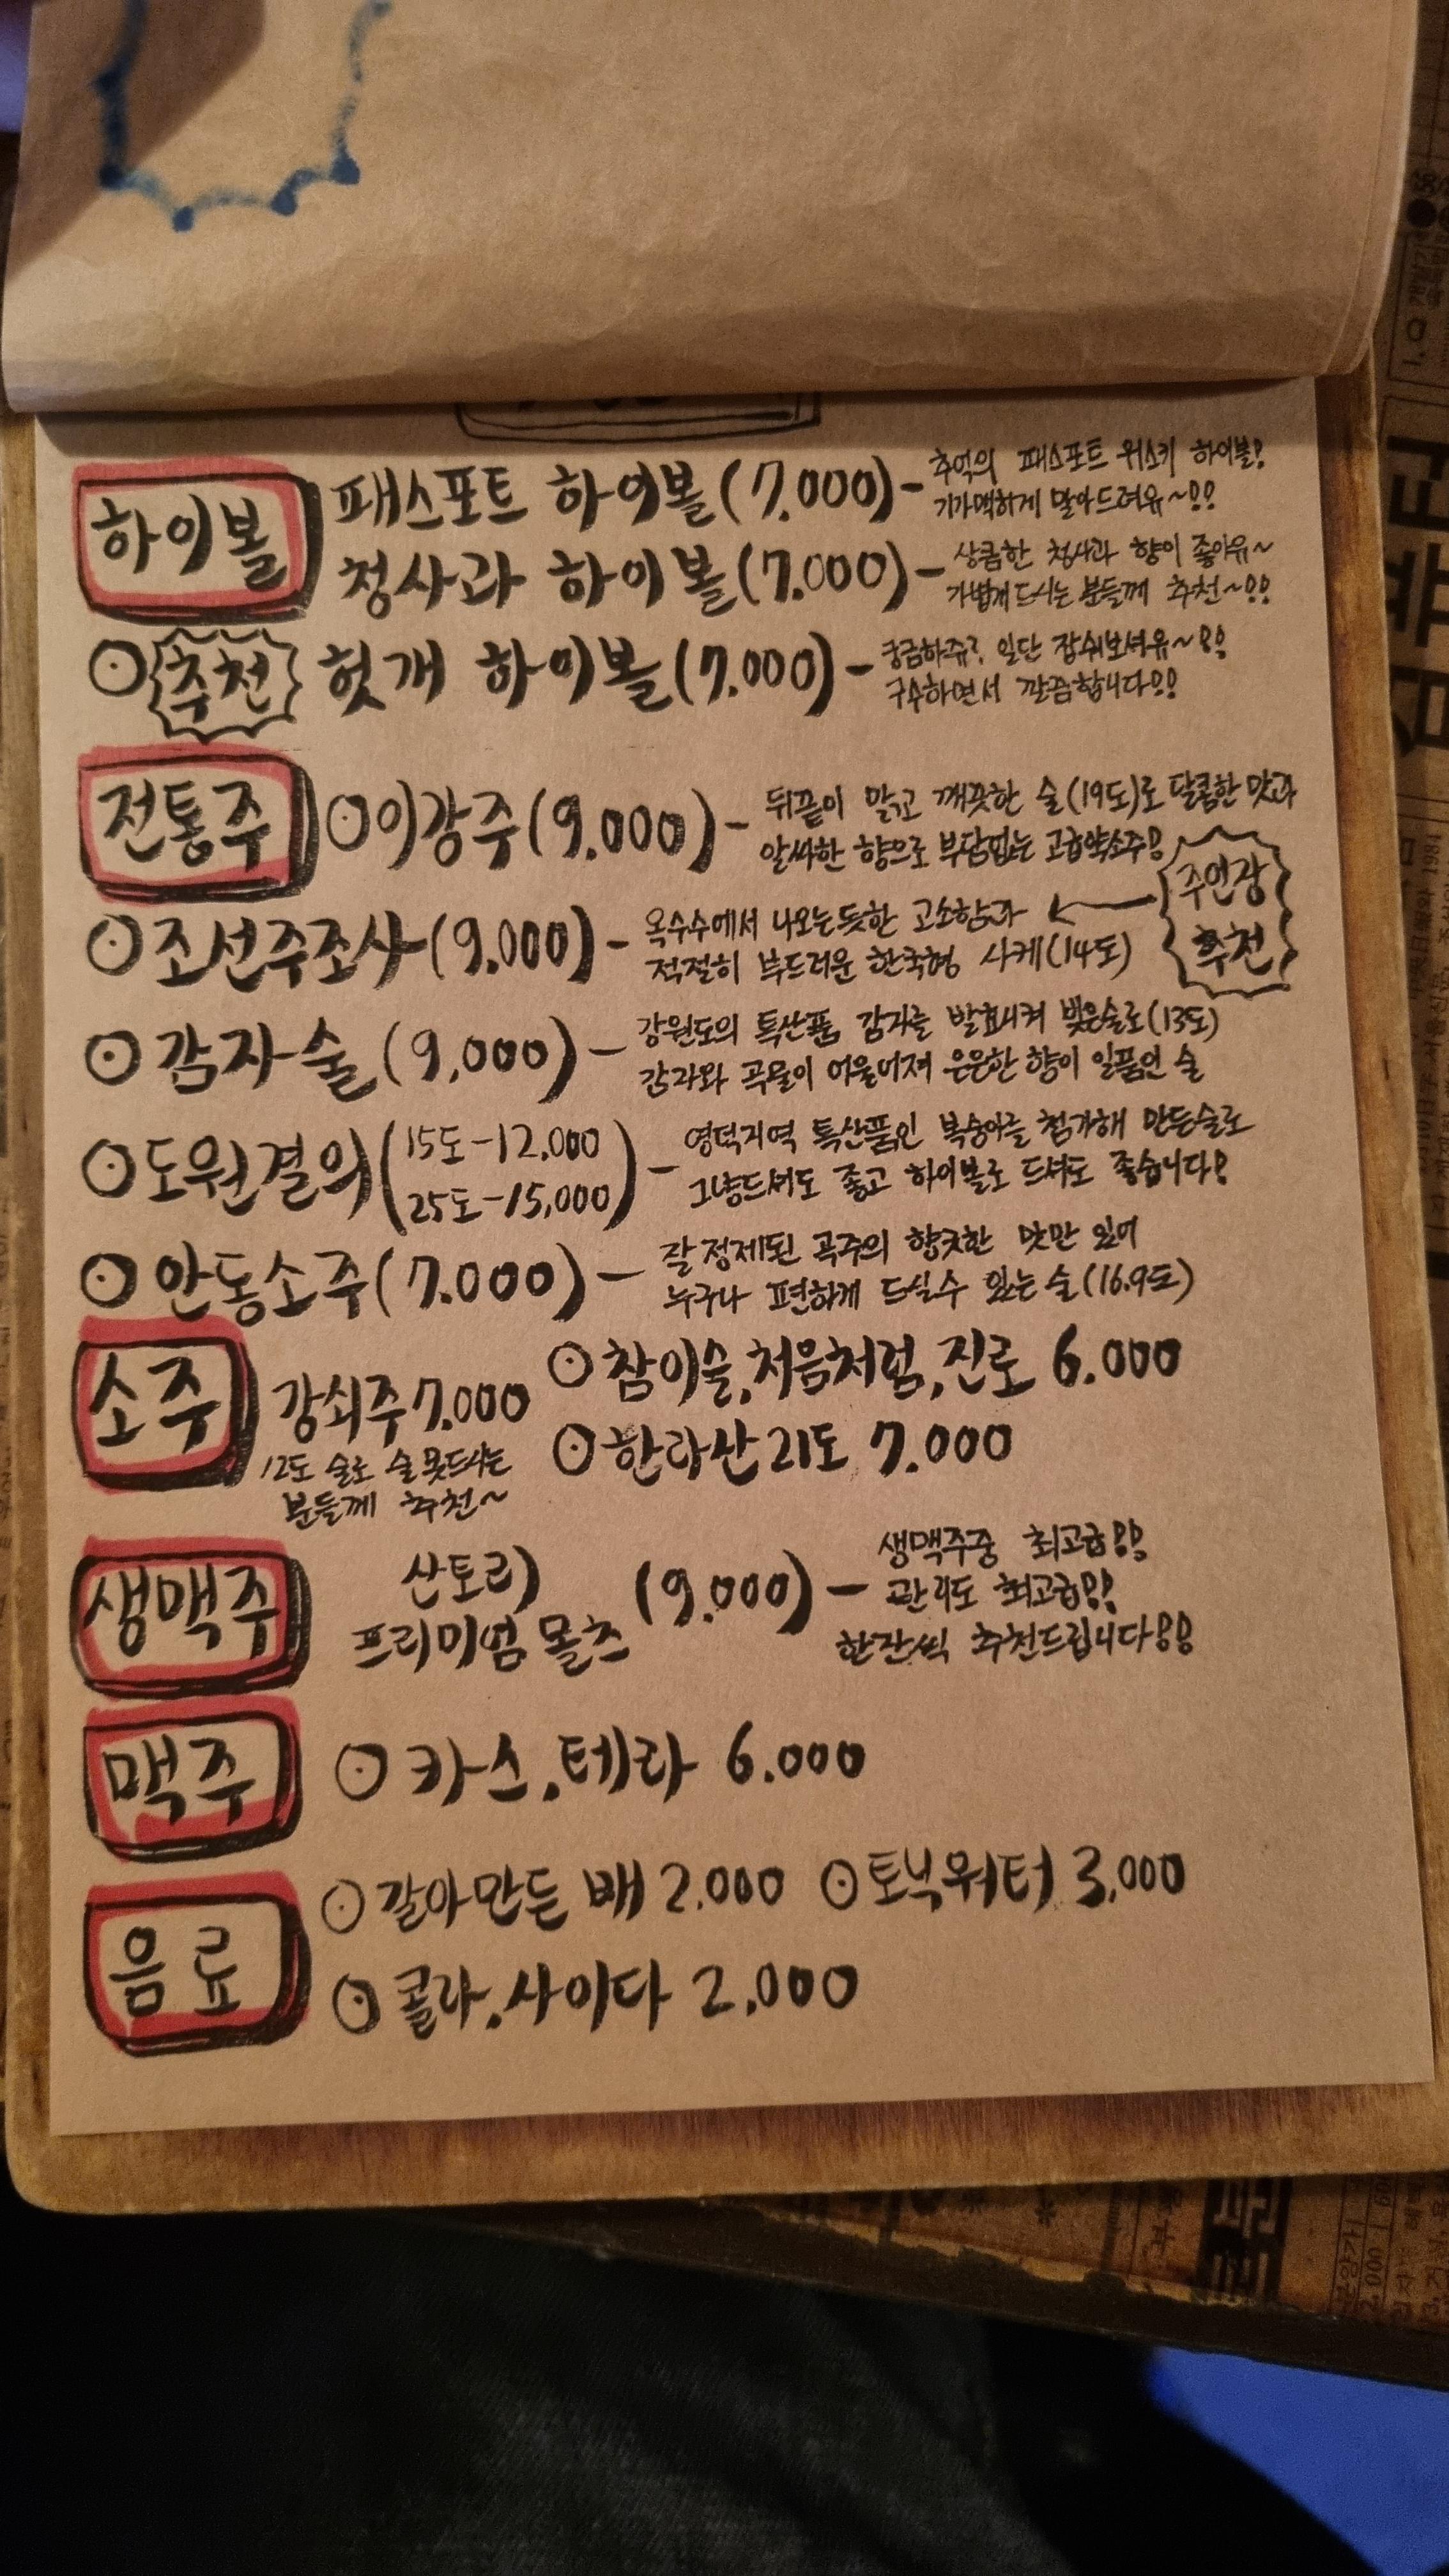 하이볼
패스포트 하이볼(7.000)- 추억의 패스포트 위스키 하이볼!
기가맥히게 말아드려유~!!
청사과 하이볼(7.000)- 상큼한 청사과 향이 좋아유~
가볍게드시는 분들께 추천~!!
추천 헛개 하이볼(7.000)- 궁금하쥬? 일단 잡숴보셔유~!!
구수하면서 깔끔합니다!!
전통주
이강주(9.000)- 뒤끝이 맑고 깨끗한 술(19도)로 달콤한 맛과
알싸한 향으로 부담없는 고급약소주!
주연장
추천
조선주조사(9.000)- 옥수수에서 나오는듯한 고소함과
적절히 부드러운 한국형 사케(14도)
감자술(9,000)- 강원도의 특산품 감자를 발효시켜 빚은술로(13도)
감자와 곡물이 어울어져 은은한 향이 일품인 술
도원결의(15도-12.000
25도-15,000)- 영덕지역 특산품인 복숭아를 첨가해 만든술로
그냥드셔도 좋고 하이볼로 드셔도 좋습니다!
안동소주(7.000)- 잘 정제된 곡주의 향긋한 맛만 있어
누구나 편하게 드실수 있는 술(16.9도)
소주
강쇠주 7.000
12도 술로 술 못드시는
분들께 추천~
참이슬,처음처럼,진로 6.000
한라산21도 7.000
생맥주
산토리)
프리미엄 몰츠 (9.000)- 생맥주중 최고급!!
관리도 최고급!!
한잔씩 추천드립니다!!
맥주
카스.테라 6.000
음료
갈아만든 배 2.000 토닉워터 3,000
콜라.사이다 2,000